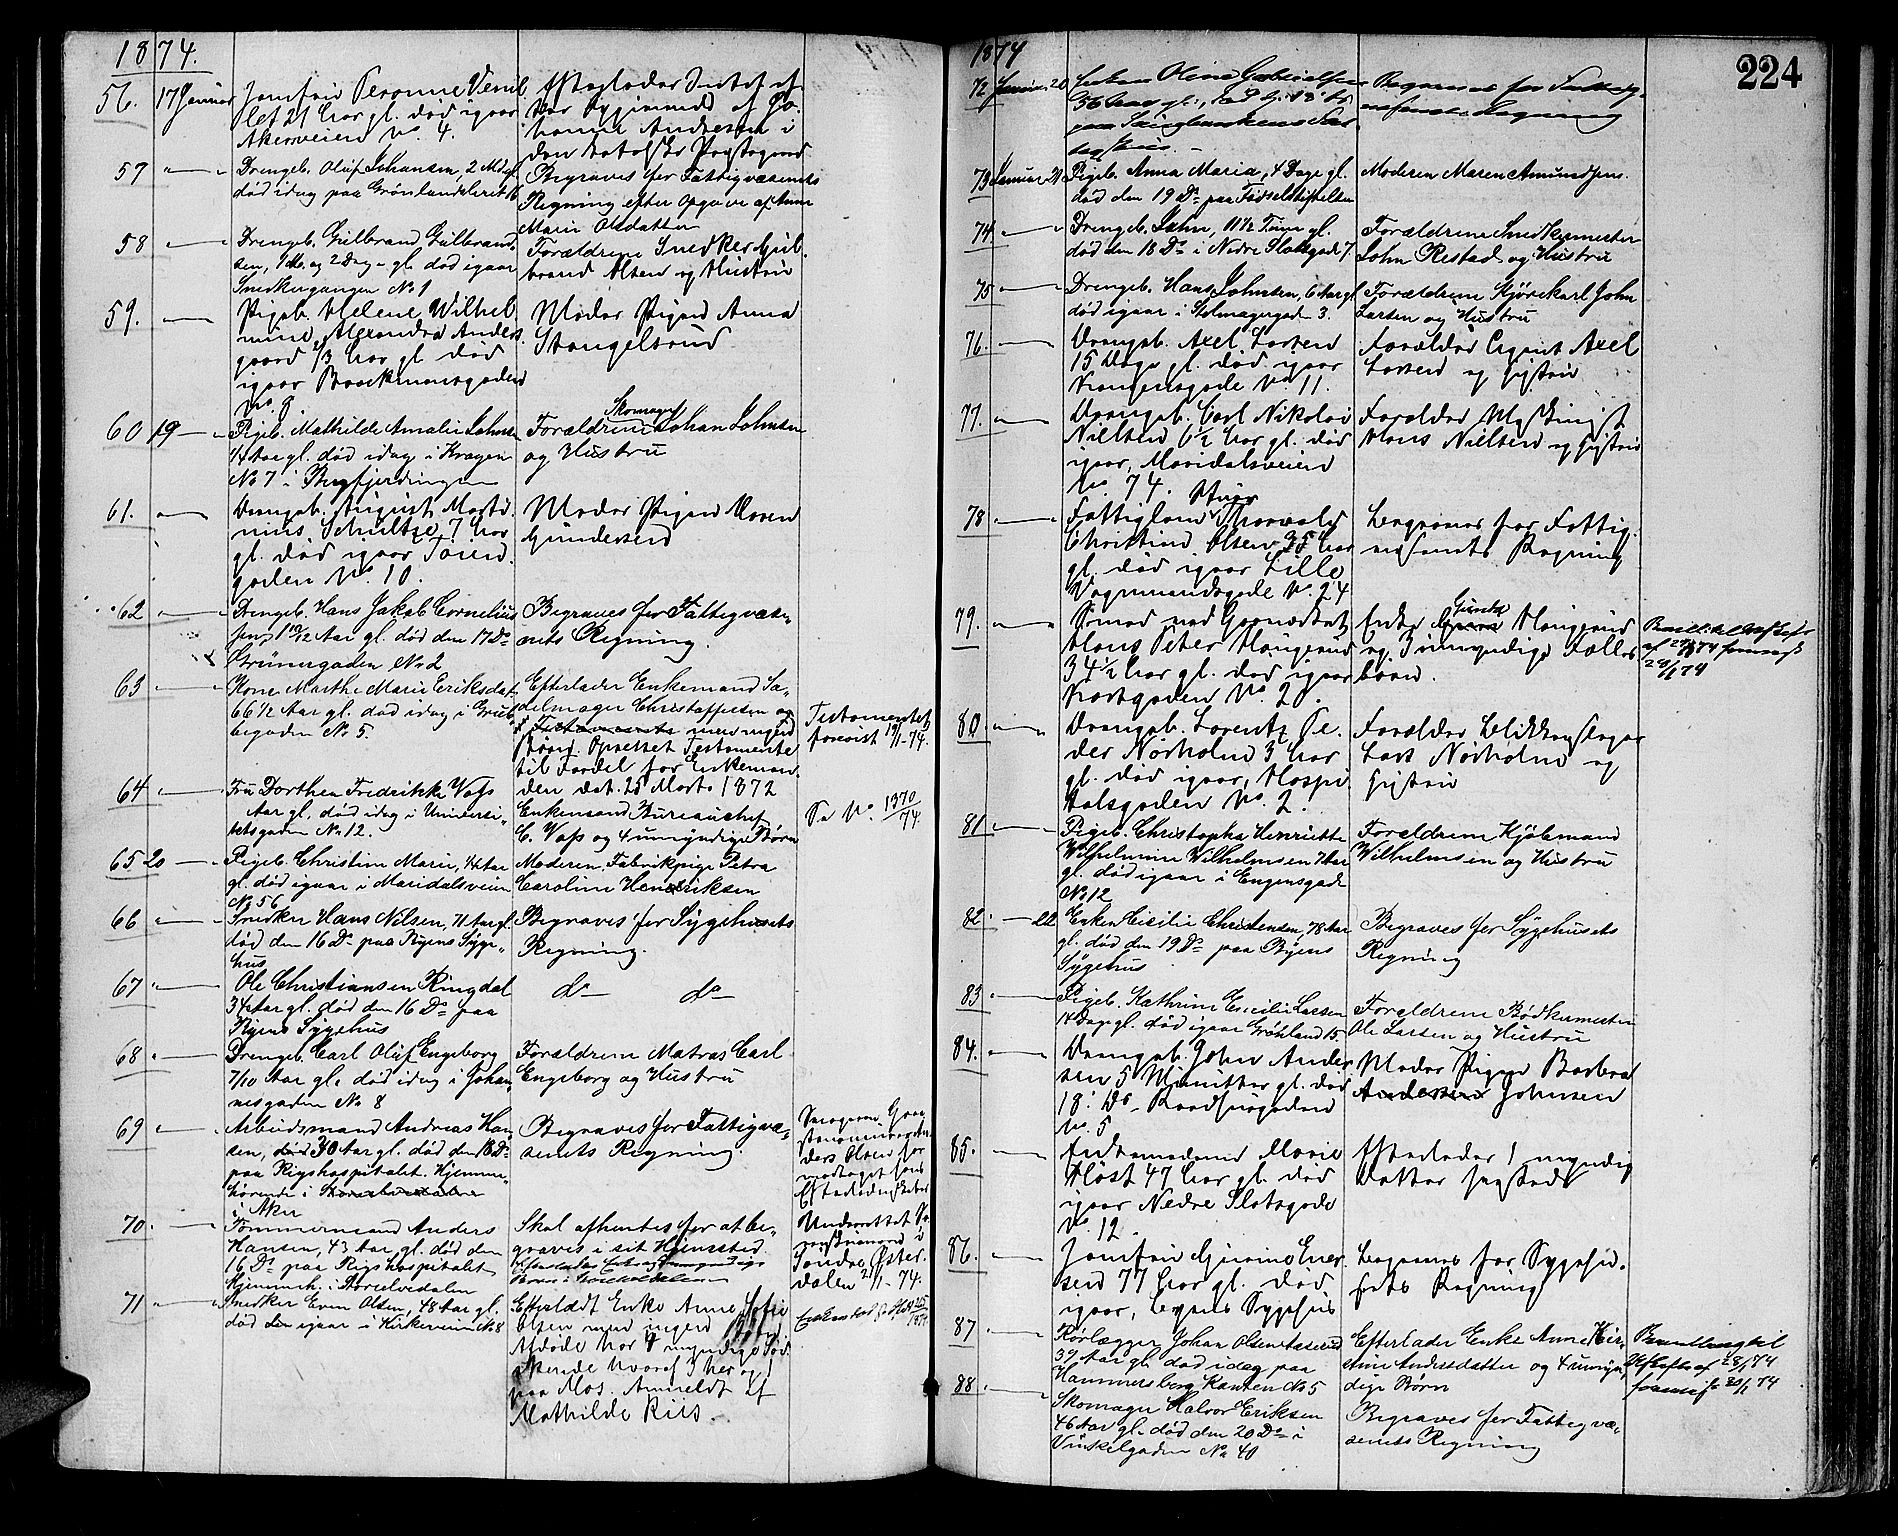 1874.
56. 17 Januar Jomfru Peronne
let 21 Aar gl. død igaar
Akersveien No. 4.
Efterlader
57 — Drengeb. Oluf Johansen, 2 Md. gl.
død idag paa Grønlandsleret 16
Begraves for Fattigvæsenets
Regning efter Opgave af Anne
Marie Olsdatter
58 — Drengeb. Gulbrand Gulbrand-
sen, 1 Md. og 2 Dage gl. død igaar
Snedkergangen No 1
Forældrene Snedker Gul-
brand Olsen og Hustru
59. — Pigeb. Helene Wilhel
mine Alexandra Anders
gaard 2/3 Aar gl. død
igaar Brockmannsgaden
No. 9
Moder Pigen Anna
Stangelsrud
60 19 — Pigeb. Mathilde Amalie Johnsen
1/4 Aar gl. død idag i Krogen
No 7 i Bergfjerdingen
Forældrene Skomager Johan Johnsen
og Hustru
61. — Drengeb. August Marti-
nius Schultze 7 Aar
gl. død igaar
gaden No. 10.
Moder Pigen Karen
Gundersen
62 — Drengeb. Hans Jakob Cornelius
sen, 1 10/12 Aar gl. død den 17 Ds
Brünersgaden No 2
Begraves for Fattigvæs-
enets Regning.
63 — Kone Marthe Marie Eriksdat.
66 1/2 Aar gl. død idag i Grüb
begaden No 5.
Efterlader Enkemand Sa-
delmager Christoffersen og
Testamente men ingen
Børn. Oprettet Testamente
til Fordel for Enkeman-
den dat. 25 Marts 1872
Testamentet
forevist 19/1-74.
64 — Fru Dorthea Fredrikke Voss
Aar gl. død idag i Universi-
tetsgaden No 12.
Enkemand Bureauchef
C. Voss og 4 umyndige Børn
Sa No. 1370/74
65 20 — Pigeb. Christine Marie, 1/4 Aar
gl. død igaar i Maridalsveien
No 56
Moderen Fabrikpige Petra
Caroline Hendriksen
66 — Snedker Hans Nilsen, 71 Aar gl.
død den 16 Ds paa Byens Syge-
hus
Begraves for Sygehusets
Regning.
67 — Ole Christiansen Ringdal
34 Aar gl. død den 16 Ds paa
Byens Sygehus
do — do —
68 — Drengeb. Carl Oluf Engeborg
7/10 Aar gl. død idag i Johan-
nesgaden No 8
Forældrene Matros Carl
Engeborg og Hustru
69 — Arbeidsmand Andreas Han-
sen, død 30 Aar gl. død den 18 Ds
paa Rigshospitalet. Hjemme-
hørende i
i Aker
Begraves for Fattigvæ-
senets Regning.
70. — Tømmermand Anders
Hansen, 43 Aar gl. død den
16 Ds paa Rigshospitalet
Hjemmeh. i Storelvedalen
Skal afhentes for at be-
graves i sit Hjemsted.
Underrettet So-
renskriveren i
Søndre Øster-
dalen 21/1-74.
71 — Snedker Even Olsen, 48 Aar gl.
død igaar i Kirkeveien No 8
Efterladt Enke Anne Sofie
Olsen men ingen
Afdøde har 4 umyndige Sød
skende hvoraf 3 her og 1
paa Mos. Anmeldt af
Mathilde Riis.
1874
224
72 Januar 20 Enken Oline Gabrielsen
56 Aar gl.
Begraves for Fattig-
væsenets Regning
73 Januar 21 Pigeb. Anna Maria, 4 Dage gl.
død den 19 Ds paa Fødselsstiftelsen
Moderen Maren Amundsen.
74. — Drengeb. John, 11 1/2 Time gl.
død den 18 Ds i Nedre Slotsgade 7.
Forældrene Snedkermester
John Restad og Hustru
75 — Drengeb. Hans Johnsen, 6 Aar gl.
død igaar i Stolmagergade 3.
Forældrene Kjørekarl John
Larsen og Hustru
76. — Drengeb. Axel Larsen
15 Dage gl. død igaar
Kongensgade No. 11.
Forælder Agent Axel
Larsen og Hustru
77. — Drengeb. Carl Nikolai
Nielsen 6 1/2 Aar gl. død
igaar, Maridalsveien
No. 74.
Forælder Maskinist
Hans Nielsen og Hustru
78 — Fattiglem Thorvald
Christian Olsen 35 Aar
gl. død igaar Lille
Vognmandsgade No. 24
Begraves for Fattig-
væsenets Regning
79. — Formand ved Gasværket
Hans Peter Haugerud
34 1/2 Aar gl. død igaar
Karlsgaden No. 2.
Enke Haugerud
og 3 umyndige Fælles
børn.
80. — Drengeb. Lorentz Pe-
der Nørholm 3 Aar
gl. død igaar, Hospi-
talsgaden No. 2.
Forælder Blikkenslager
Lars Nørholm og
Hustru
81 — Pigeb. Christopha Henriette
Wilhelmine Wilhelmsen 7 Aar
gl. død igaar i Engensgade
No 12
Forældrene Kjøbmand
Wilhelmsen og Hustru
82. — 22 Enken Cicilie Christensen, 78 Aar
gl. død den 19 Ds paa Byens
Sygehus
Begraves for Sygehusets
Regning
83 — Pigeb. Kathrine Cicilie Larsen
14 Dage gl. død igaar Grønland 15.
Forældrene Bødkermester
Ole Larsen og Hustru
84. — Drengeb. John Ander
sen 5 Minutter gl. død
18. Ds Raadhusgaden
No. 5
Moder Pigen Barbra
Andersen Johnsen
85. — Marie
Høst 47 Aar gl. død
igaar Nedre Slotsgade
No. 12
Efterlader 1 myndig
Datter
86. — Jomfru Gurine Iver
sen 77 Aar gl. død
igaar, Byens Sygehus
Begraves for Sygehu-
sets Regning
87 — Rørlægger Johan Olsen Aaserud
39 Aar gl. død idag paa
Hammersborg Kanten No 5
Efterlader Enke Anne Kir-
stine Andersdatter og 4 umyn-
dige Børn
Bevilling til
Uskifte af 28/1 74
88 — Skomager Halvor Eriksen
46 Aar gl. død den 20 Ds i
Vinkelgaden No 40
Begraves for Fattigvæ-
senets Regning